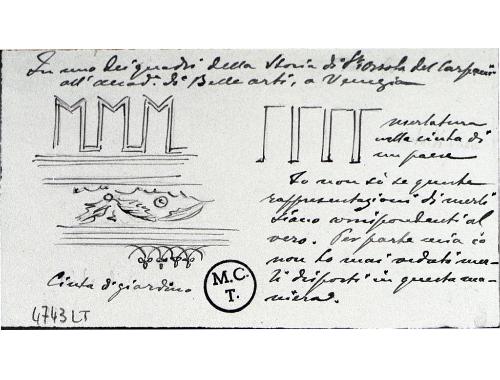 In uno dei quadri della Storia di S. Orsola del Carpaccio
all'accad. di Belle arti, a Venezia
merlatura
nella cinta di
un paese
Io non so se queste
rappresentazioni di merli
siano corrispondenti al
vero. Per parte mia io
non ho mai veduti mer-
li disposti in questa ma-
niera.
Cinta di giardino
M.C.
T.
4743 LT